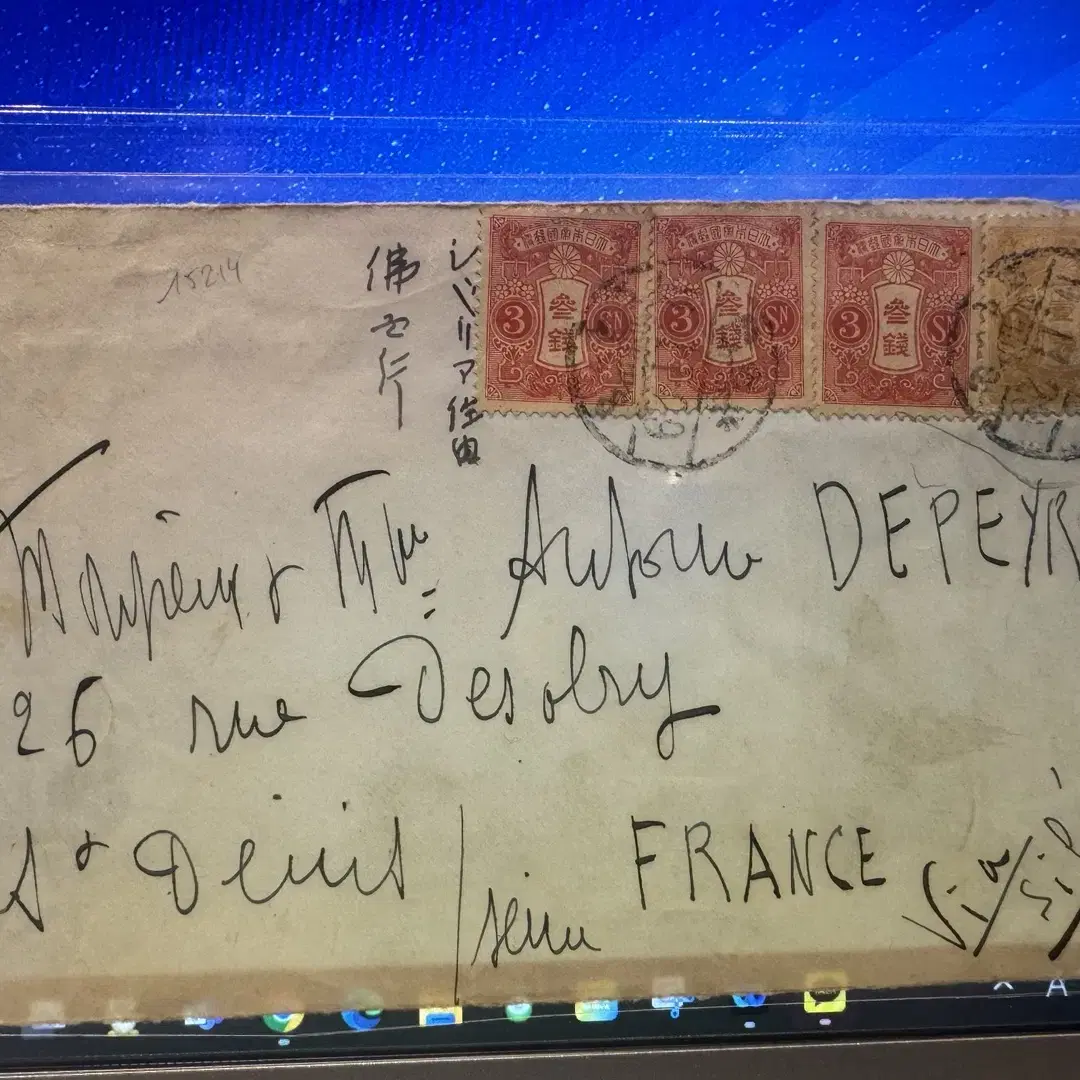 15214
シベリア経由
佛国行
大日本帝國郵便
3 叄錢 SN
大日本帝國郵便
3 叄錢 SN
大日本帝國郵便
3 叄錢 SN
Monsieur & Mme Antoine DEPEYR
26 rue Desobry
St Denis / Seine FRANCE
Via
A